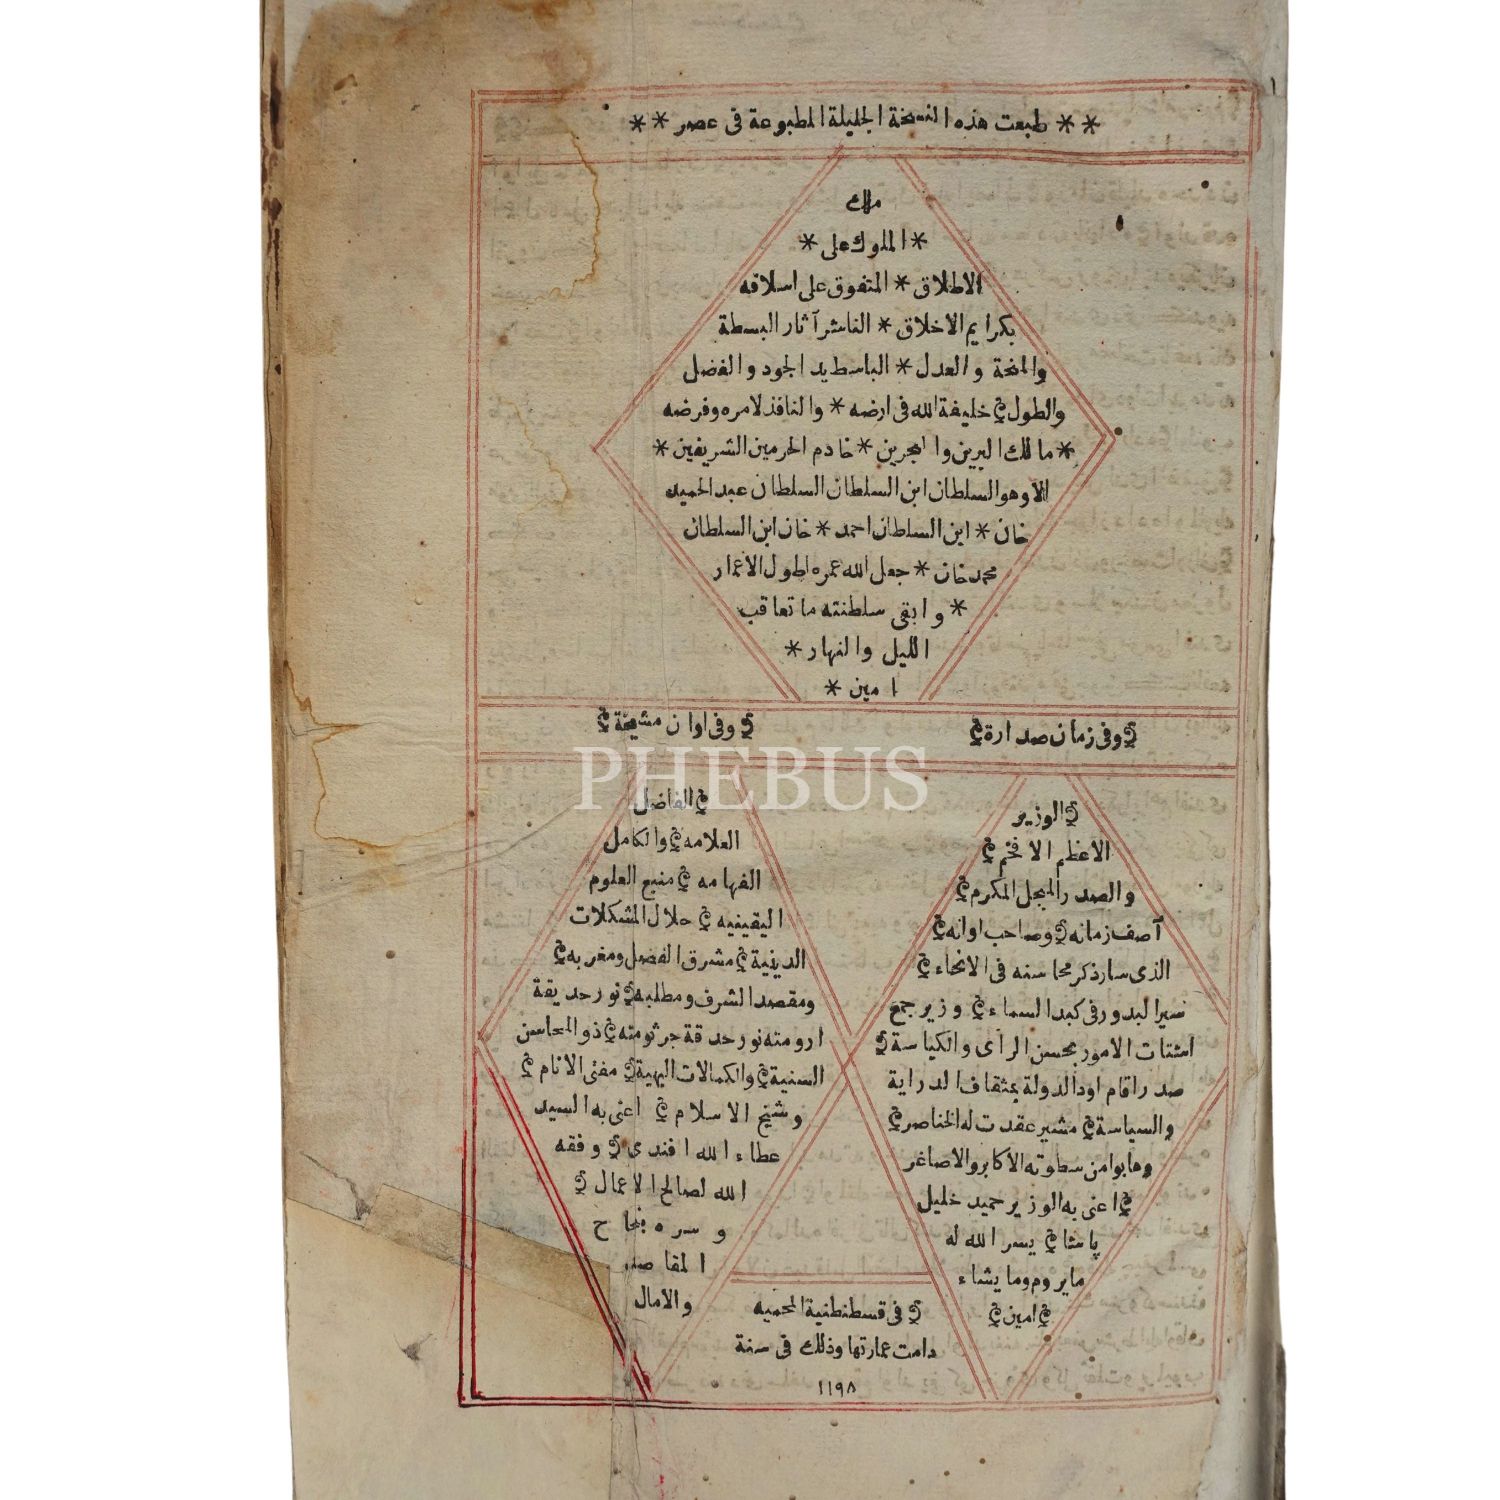 ** طبعت هذه النسخة الجليلة المطبوعة فى عصر **
ملك
* الملوك على *
الاطلاق * المتفوق على اسلافه
بكرايم الاخلاق * الناشر آثار البسطة
والمنحة والعدل * الباسط يد الجود والفضل
والطول خليفة الله فى ارضه * والنافذ لامره وفرضه
* مالك البرين والبحرين * خادم الحرمين الشريفين *
الا وهو السلطان ابن السلطان السلطان عبد الحميد
خان * ابن السلطان احمد * خان ابن السلطان
محمد خان * جعل الله عمره اطول الاعمار
* وابقى سلطنته ما تعاقب
الليل والنهار *
امين *
وفى زمان صدارة
الوزير
الاعظم الافخم
والصدر المبجل المكرم
آصف زمانه وصاحب اوانه
الذى سار ذكر محاسنه فى الانحاء
سير البدور فى كبد السماء وزير جمع
اشتات الامور بحسن الرأى والكياسة
صدر اقام اود الدولة بثقاف الدراية
والسياسة مشير عقدت له الخناصر
وهابوا من سطوته الاكابر والاصاغر
اعنى به الوزير حميد خليل
پاشا يسر الله له
ما يروم وما يشاء
امين
وفى اوان مشيخة
الفاضل
العلامه والكامل
الفهامه منبع العلوم
اليقينيه حلال المشكلات
الدينية مشرق الفضل ومغربه
ومقصد الشرف ومطلبه نور حديقة
ارومته نور حدقة جرثومته ذو المحاسن
السنية والكمالات البهية مفتى الانام
وشيخ الاسلام اعنى به السيد
عطاء الله افندى وفقه
الله لصالح الاعمال
وسره بنجاح
المقاصد
والامال
فى قسطنطنية المحميه
دامت عمارتها وذلك فى سنة
١١٩٨
PHEBUS